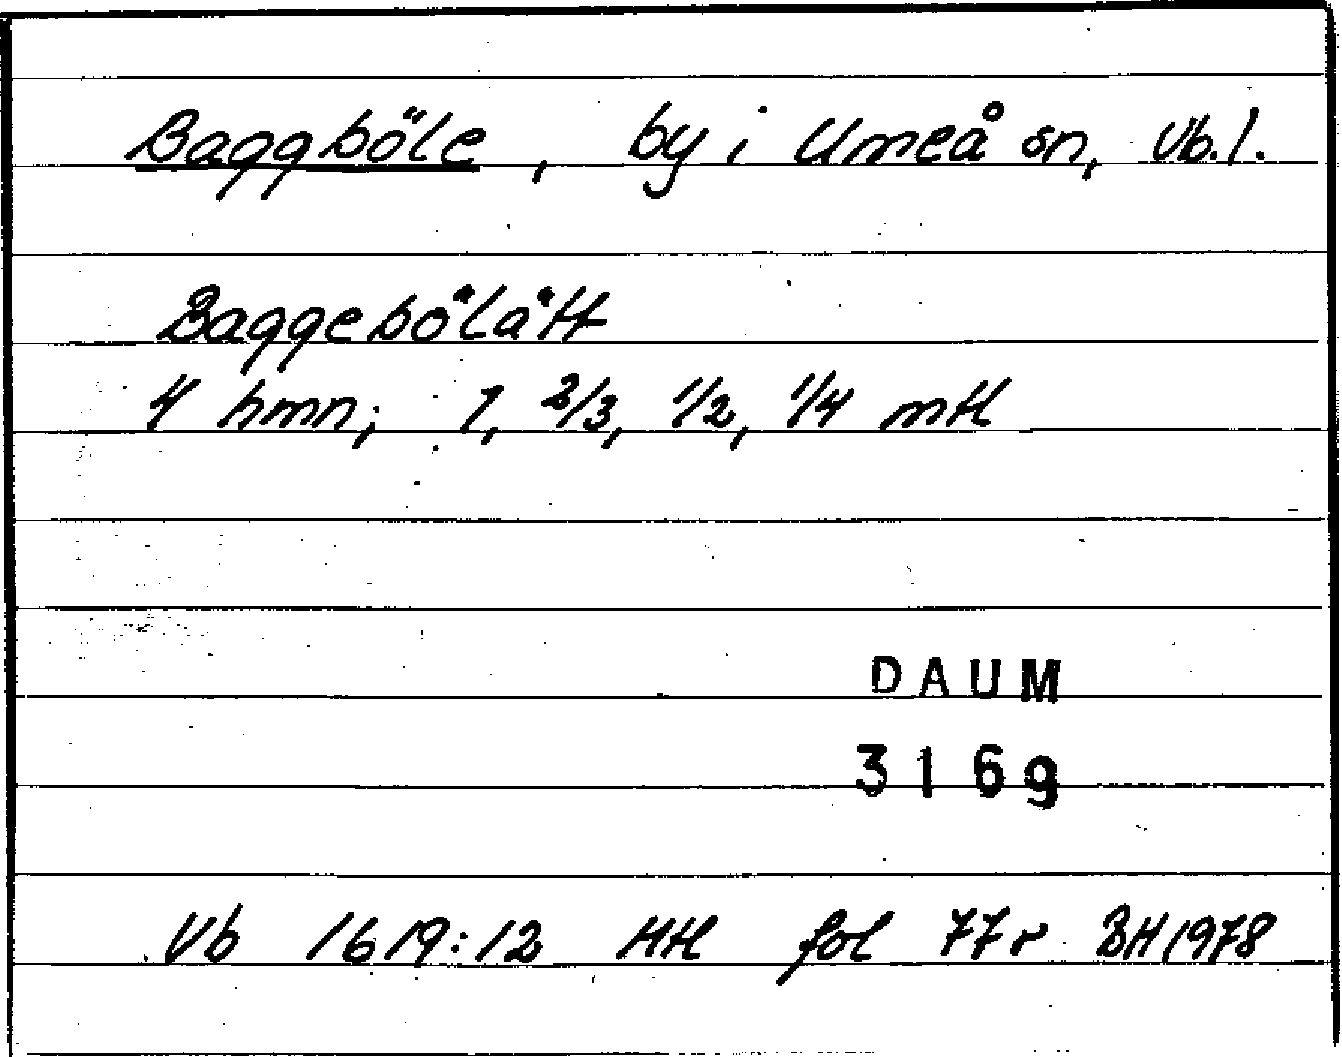 Baggböle, by i Umeå sn, Vb.l.
Baggebölätt
4 hmn; 1, 2/3, 1/2, 1/4 mtl
DAUM
3169
Vb 1619:12 HH fol 77r BH1978